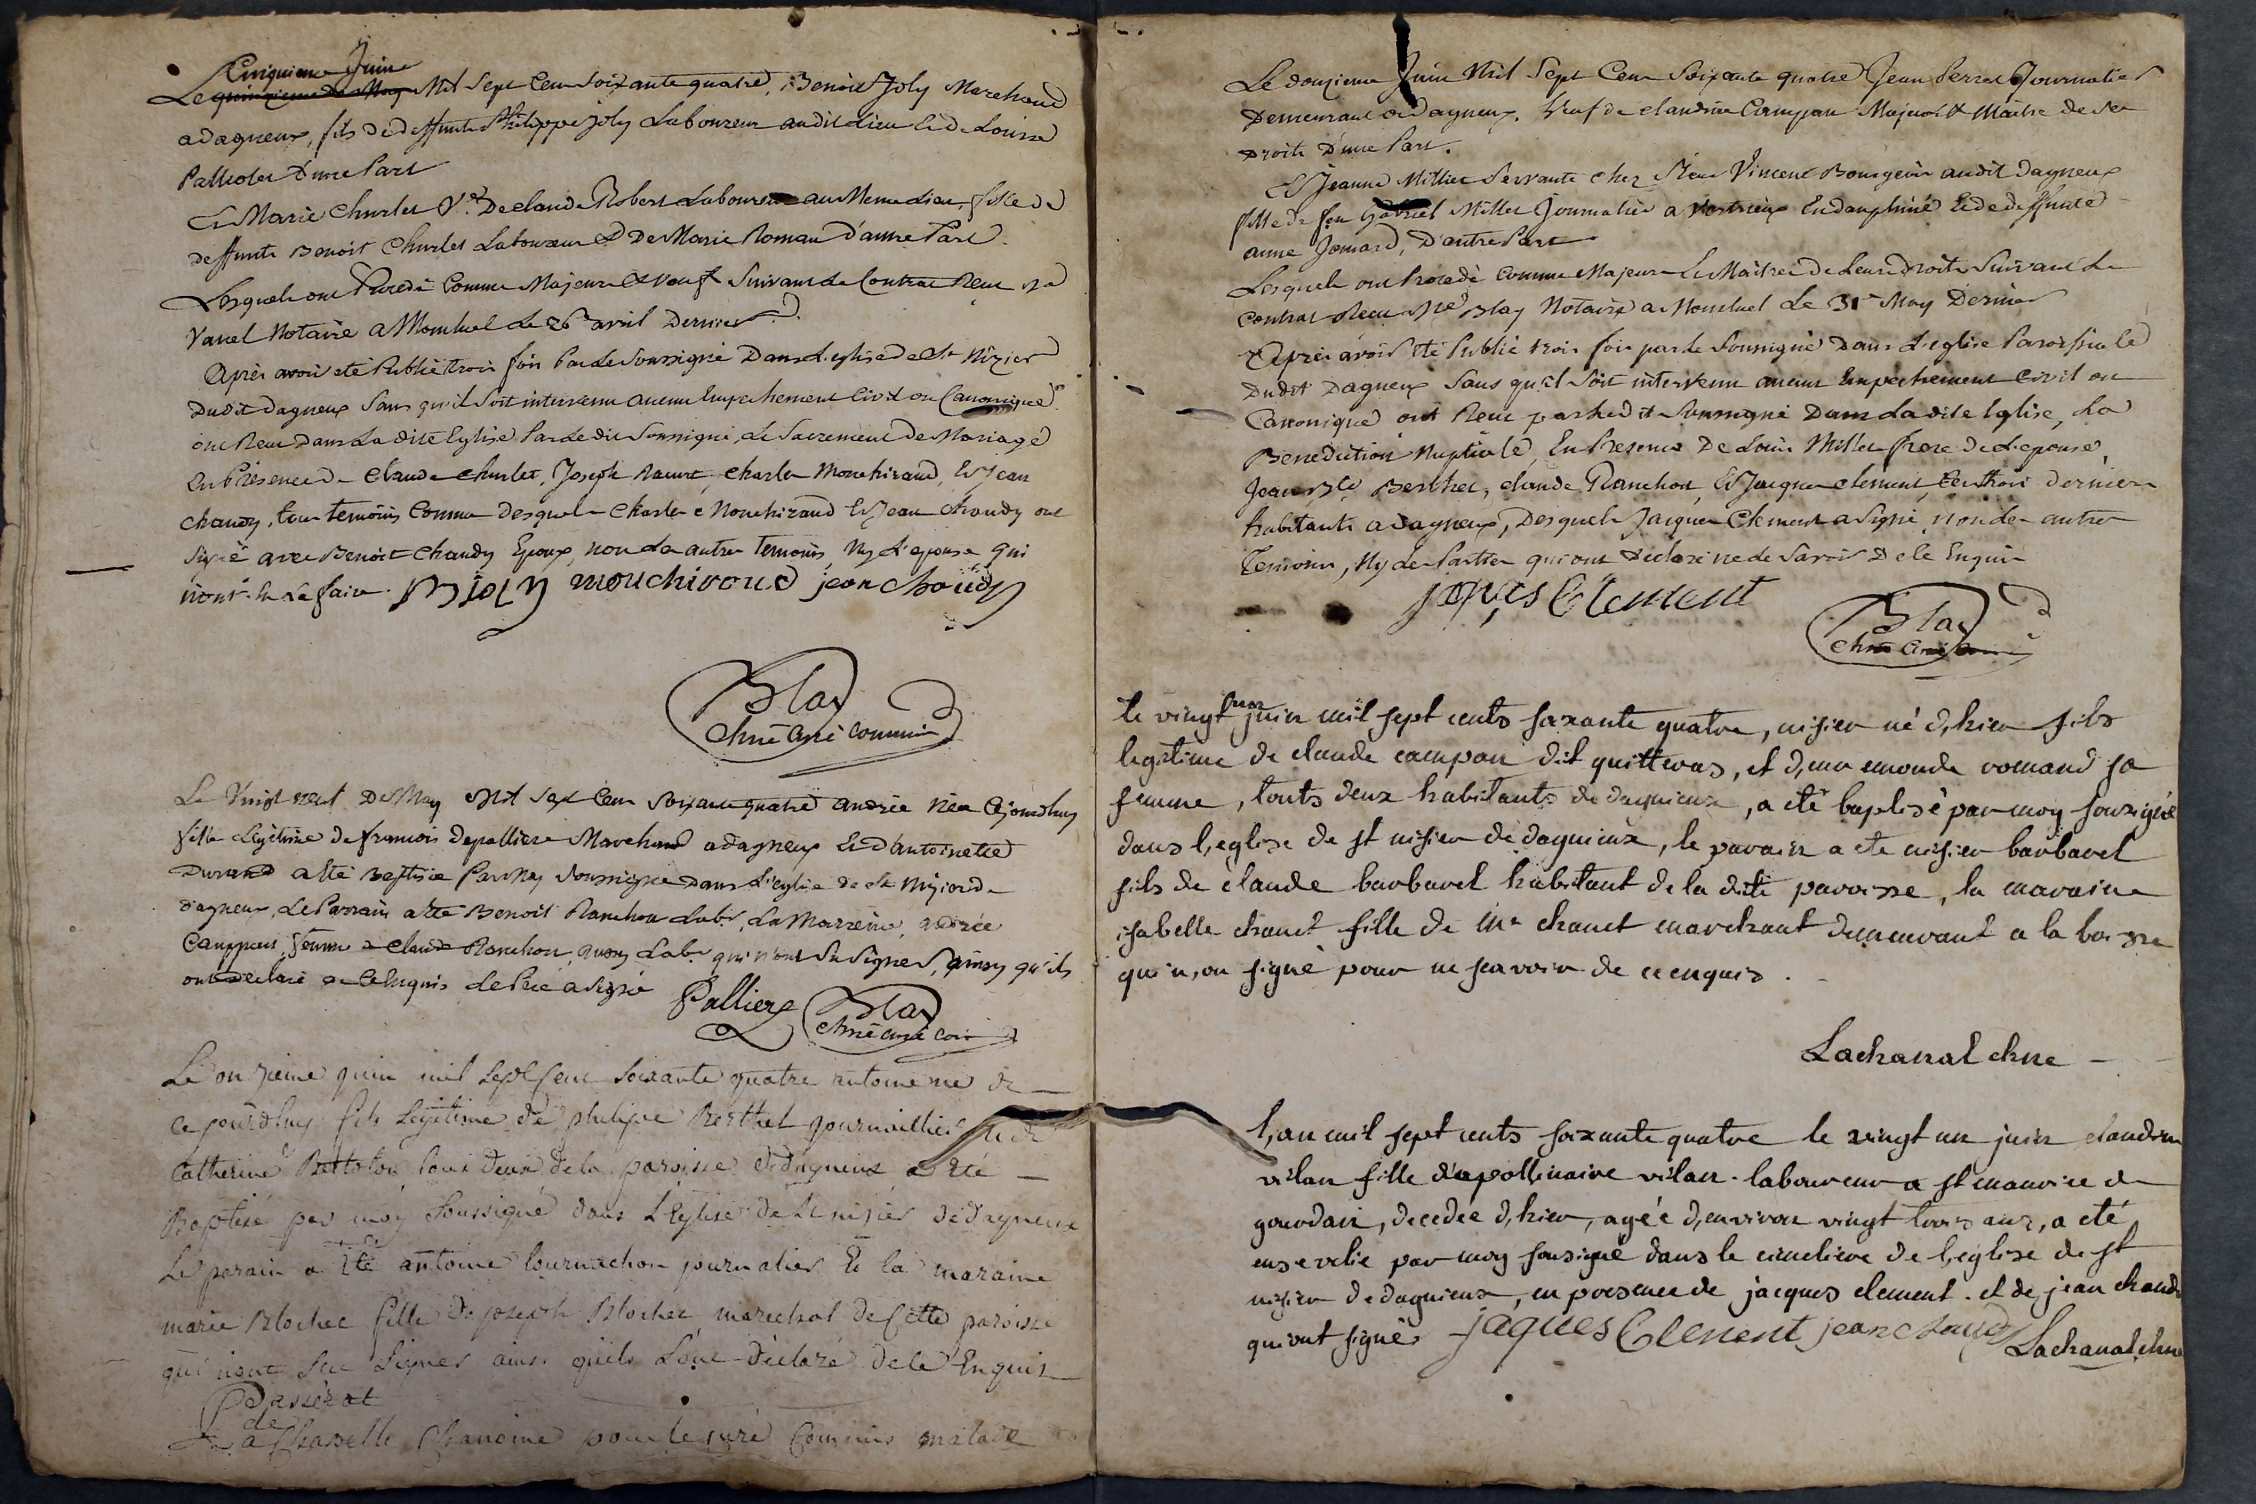 Cinquieme Juin
Le quinzieme de May Mil Sept Cent Soixante quatre, Benoit Joly Marchand
a dagneux, fils de deffunts Philippe Joly Laboureur audit Lieu et de Louise
Palliolet d'une Part
Et Marie Churlet Ve. De claude Robert Laboureur au Meme Lieu, fille de
deffunts Benoit Churlet Laboureur & De Marie Roman d'autre Part.
Lesquels ont Procedé Comme Majeurs et veufs Suivant Le Contrat Recu Me
Vanel Notaire a Montluel Le 26 avril Dernier.
Après avoir eté Publié trois fois Par Le Soussigné Dans L'eglise de St Nizier
Dudit dagneux Sans qu'il Soit intervenu aucun Empechement Civil ou Canonique
ont Recu Dans La dite Eglise Par Le dit Soussigné, Le Sacrement De Mariage
En Présence de Claude Churlet, Joseph Navirt, Charles Mouchiraud, Et Jean
chaudy, tous temoins Connus Desquels Charles Mouchiraud Et Jean Chaudy ont
Signé avec Benoit Chaudy Epoux, non Les autres Temoins, Ny L'epouse qui
n'ont Su Le faire. BJoly mouchiroud jean chaudy
Blay
Chne Curé commis
Le Vingt neuf De May Mil Sept Cent Soixante quatre andrée née Cejourdhuy
fille Légitime de francois depalliere Marchand a dagneux Et d'antoinette
Durand a eté Baptisée Par Moy Soussigné Dans L'eglise de St Nizier de
dagneux, Le Parrain a eté Benoit Ranchon Labr. La Marreine, andrée
Campant, femme a Claude Ranchon, aussy Labr. qui n'ont Su Signer, ainsy qu'ils
ont declaré de Ce Enquis Le Pere a Signé Palliere Blay
Chne curé com
Le onzieme juin mil Sept Cent Soixante quatre antoine né de
ce jourdhuy fils Legitime de philipe Berthet journaillier et de
Catherine Bertolon tous deux de la paroisse de dagneux a eté
Baptisé par moy Soussigné dans L'Eglise de St nisier de dagneux
Le parain a Eté antoine tournachon journalier Et la maraine
marie Blochet fille de joseph Blochet marechal de Cette paroisse
qui n'ont Scu Signer ainsi qu'ils L'ont déclaré de ce Enquis
Passerat
de
La Chapelle Chanoine pour le curé Commis malade
Le douzieme Juin Mil Sept Cent Soixante quatre Jean Perret Journalier
Demeurant a Dagneux, Veuf de claudine Campan Majeur & Maître de Ses
Droits D'une Part.
Et Jeanne Millet Servante chez Sieur Vincent Bourgeois audit Dagneux
fille de feu Gabriel Millet Journalier a Vertrieux En dauphiné Et de deffunte
anne Jomard, D'autre Part
Lesquels ont Procedé Comme Majeurs Et Maîtres de Leurs Droits Suivant Le
Contrat Recu Me Blay Notaire a Montluel Le 31e May Dernier
Après avoir eté Publié trois fois par Le Soussigné Dans L'eglise Paroissiale
Dudit Dagneux Sans qu'il Soit intervenu aucun Empechement Civil ou
Canonique ont Recu par Ledit Soussigné Dans La dite Eglise, La
Benediction Nuptiale, En Presence De Louis Millet frere de L'epouse,
Jean Bte Berthet, claude Ranchon, Et Jacques clement, Ces trois derniers
habitants a dagneux, Desquels Jacques Clement a Signé, non Les autres
Temoins, Ny Les Parties qui ont Declaré ne le Savoir De ce Enquis
jaques Clement
Blay
Chne Curé Com
le vingt deux juin mil sept cents soixante quatre, nisier né d,hier fils
legitime de claude campan dit quitteras, et d,emmonde romand sa
femme, touts deux habitants de dagnieux, a eté baptisé par moy sousigné
dans l,eglise de st nisier de dagnieux, le parain a ete nisier barbaret
fils de claude barbaret habitant de la dite paroisse, la maraine
isabelle chanet fille de mr chanet marchant demeurant a la boisse
qui n,on signé pour ne scavoir de ce enquis.
Lachanal chne
l,an mil sept cents soixante quatre le vingt un juin claudine
vilan fille d'apollinaire vilan laboureur a st maurice de
gourdan, decedée d,hier, agée d,environ vingt trois ans, a eté
ensevelie par moy sousigné dans le cimetiere de l,eglise de st
nisier de dagnieux, en presence de jacques clement et de jean chaudy
qui ont signés jaques Clement jean chaudy Lachanal chne